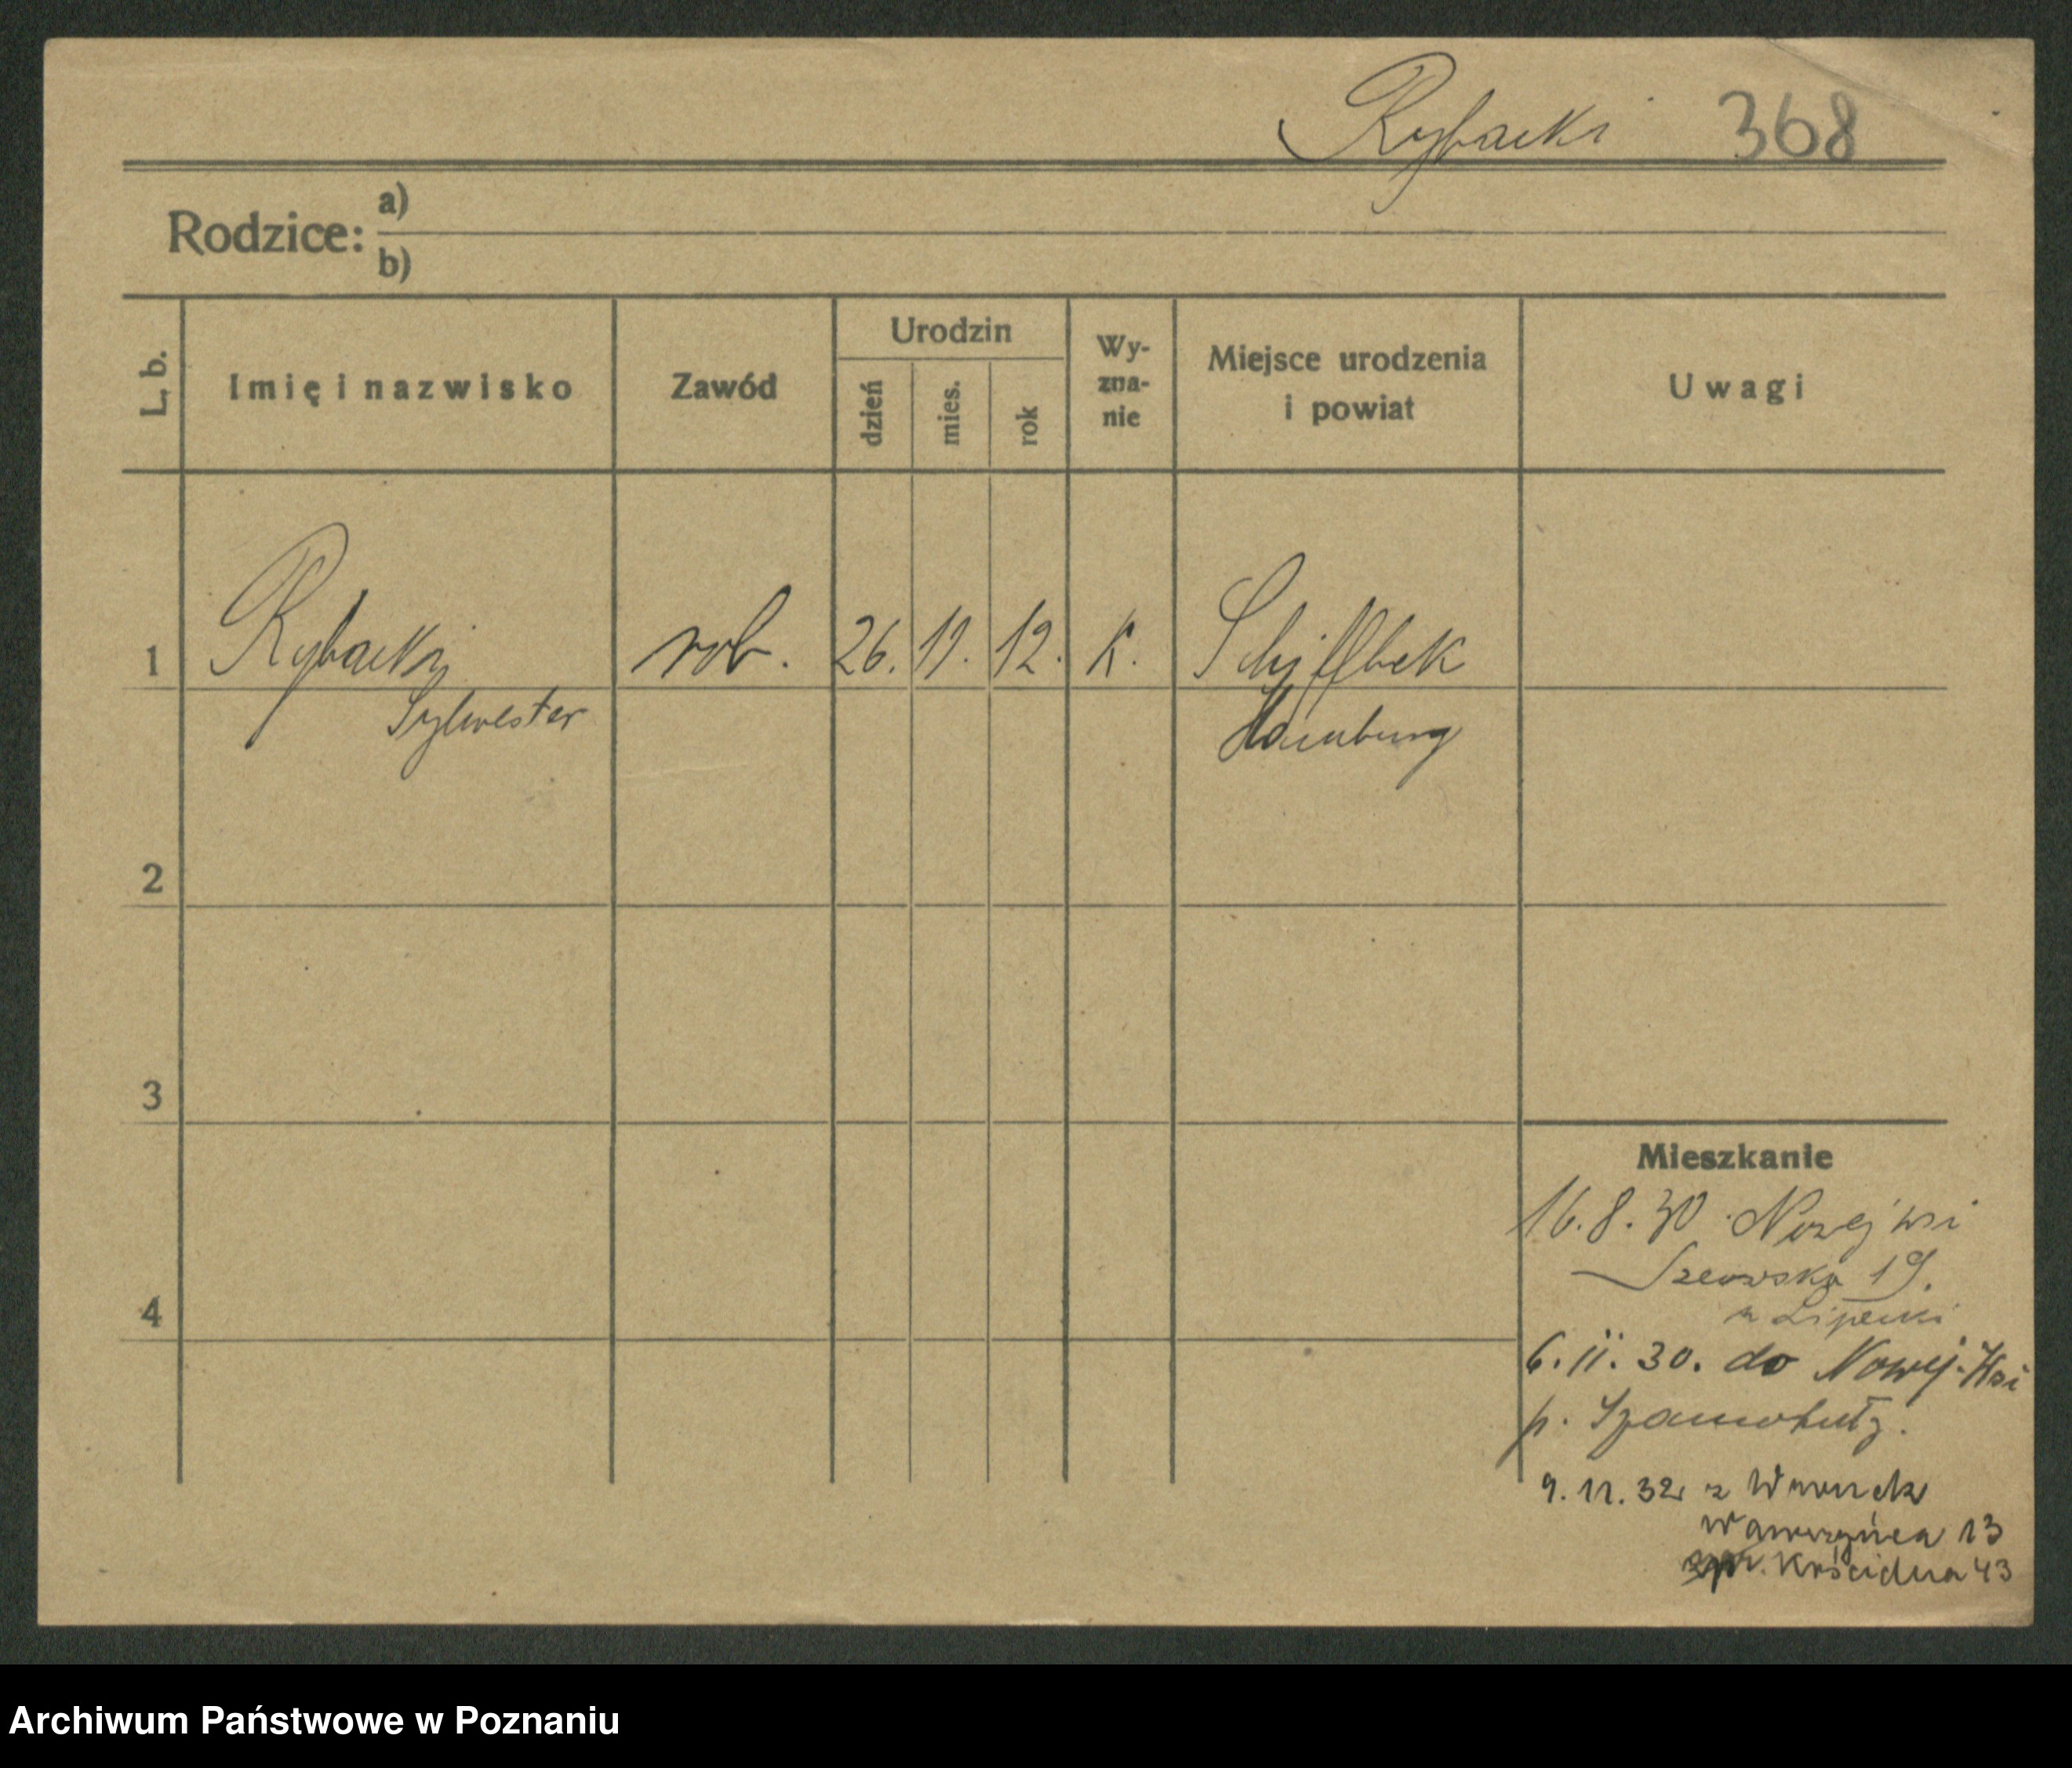 Rybacki 368
Rodzice: a)
b)
L. b.
Imię i nazwisko
Zawód
Urodzin
dzień
mies.
rok
Wy-
zna-
nie
Miejsce urodzenia
i powiat
Uwagi
1 Rybacki rob. 26. 11. 12. K. Schiffbek
Sylwester Hamburg
2
3
4
Mieszkanie
16.8.30 Nowej wsi
Szewska 19.
6.11.30. do Nowej-Wsi
p. Szamotuły.
9.11.32 z Wronek
Wawrzyńca 13
43
Archiwum Państwowe w Poznaniu